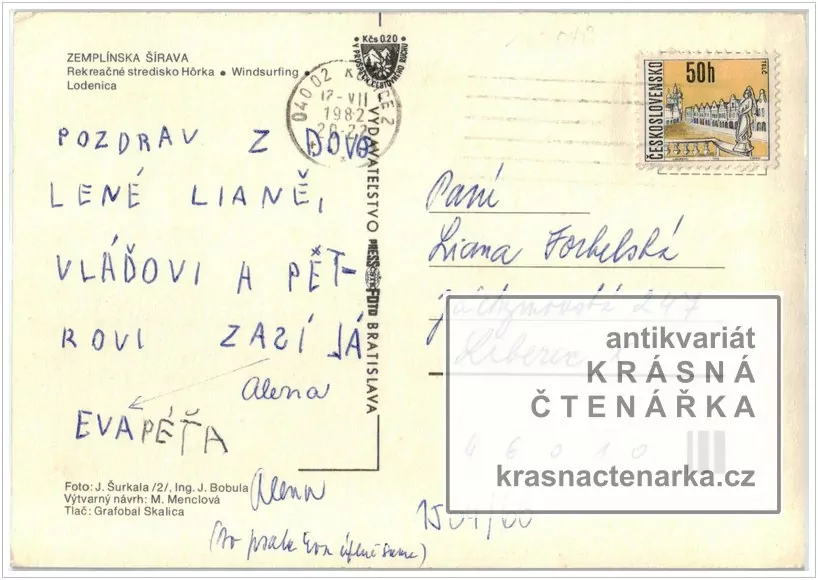 ZEMPLÍNSKA ŠÍRAVA
Rekreačné stredisko Hôrka • Windsurfing •
Lodenica
POZDRAV Z DOVO
LENÉ LIANĚ,
VLÁĎOVI A PĚT-
ROVI ZASÍJÁ
Alena
EVA PÉŤA
Alena
(to psala Eva úplně sama)
Foto: J. Šurkala /2/, Ing. J. Bobula
Výtvarný návrh: M. Menclová
Tlač: Grafobal Skalica
Kčs 0.20
040 02 KOŠICE 2
17-VII
1982
20-22
VYDAVATEĽSTVO PRESSFOTO BRATISLAVA
ČESKOSLOVENSKO
50h
TELČ
Paní
Liana Forhelská
Jáchymovská 247
Liberec 1
46010
antikvariát
KRÁSNÁ
ČTENÁŘKA
krasnactenarka.cz